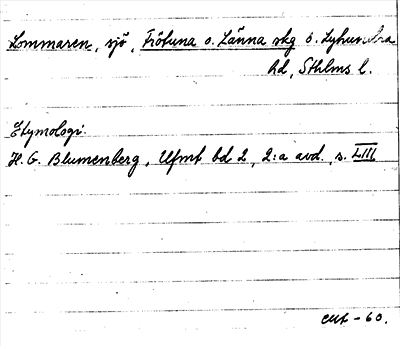 Lommaren, sjö, Frötuna o. Länna skg o. Lyhundra
hd, Sthlms l.
Etymologi:
H. G. Blumenberg, Ufmt bd 2, 2:a avd., s. LIII
-60.